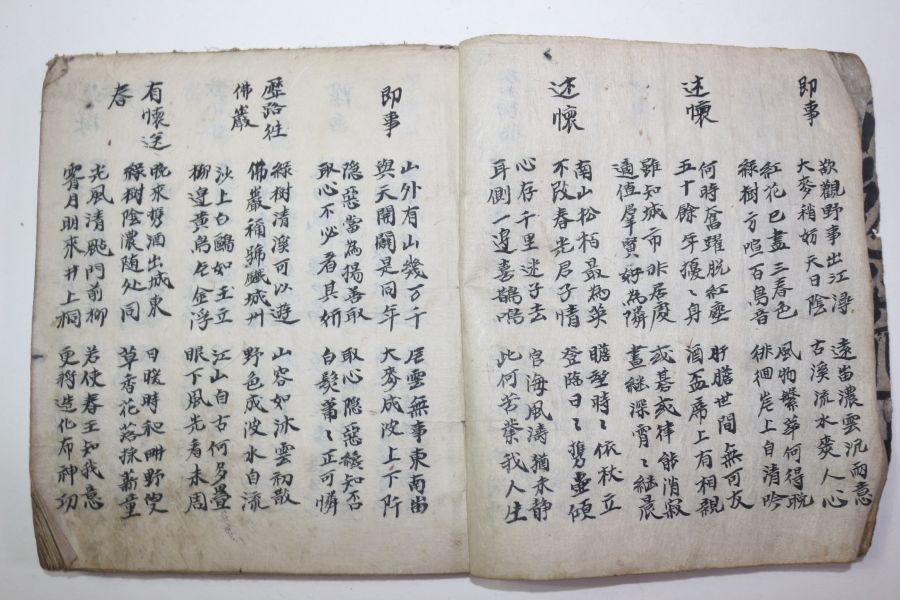 即事
欲觀野事出江潯 遠峀濃雲沉雨意
大麥稍妨天日陰 古溪流水爽人心
紅花已盡三春色 風物繁華何得晩
綠樹方喧百鳥音 徘徊崖上自清吟
述懷
何時奮躍脫紅塵 肝膽世間無可友
五十餘年擾〻身 酒盃席上有相親
雖知城市非居處 或碁或律能消寂
適値羣賢好為隣 晝継深宵〻継晨
述懷
南山松栢最為英 瞻望時〻依秋立
不改春光君子情 登臨日〻携壷傾
心存千里迷子去 宦海風濤猶未静
耳側一邊喜鵲鳴 此何苦業我人生
即事
山外有山幾万千 居雲無事東南峀
與天開闢是同年 大麥成波上下阡
隐惡當為揚善取 取心隐惡纔知否
取心不必看其妍 白髮蕭〻正可憐
歷路往
佛巖
綠樹清溪可以遊 山容如沐雲初散
佛巖稱號鐵城州 野色成波水自流
沙上白鷗如玉立 江山自古何多疊
柳邊黃鳥乍金浮 眼下風光看未周
有懷送
春
晩來携酒出城東 日暖時和野叟
綠樹陰濃随处同 草香花落採薪童
光風清颸門前柳 若使春王知我意
霽月明來井上桐 更將造化布神功